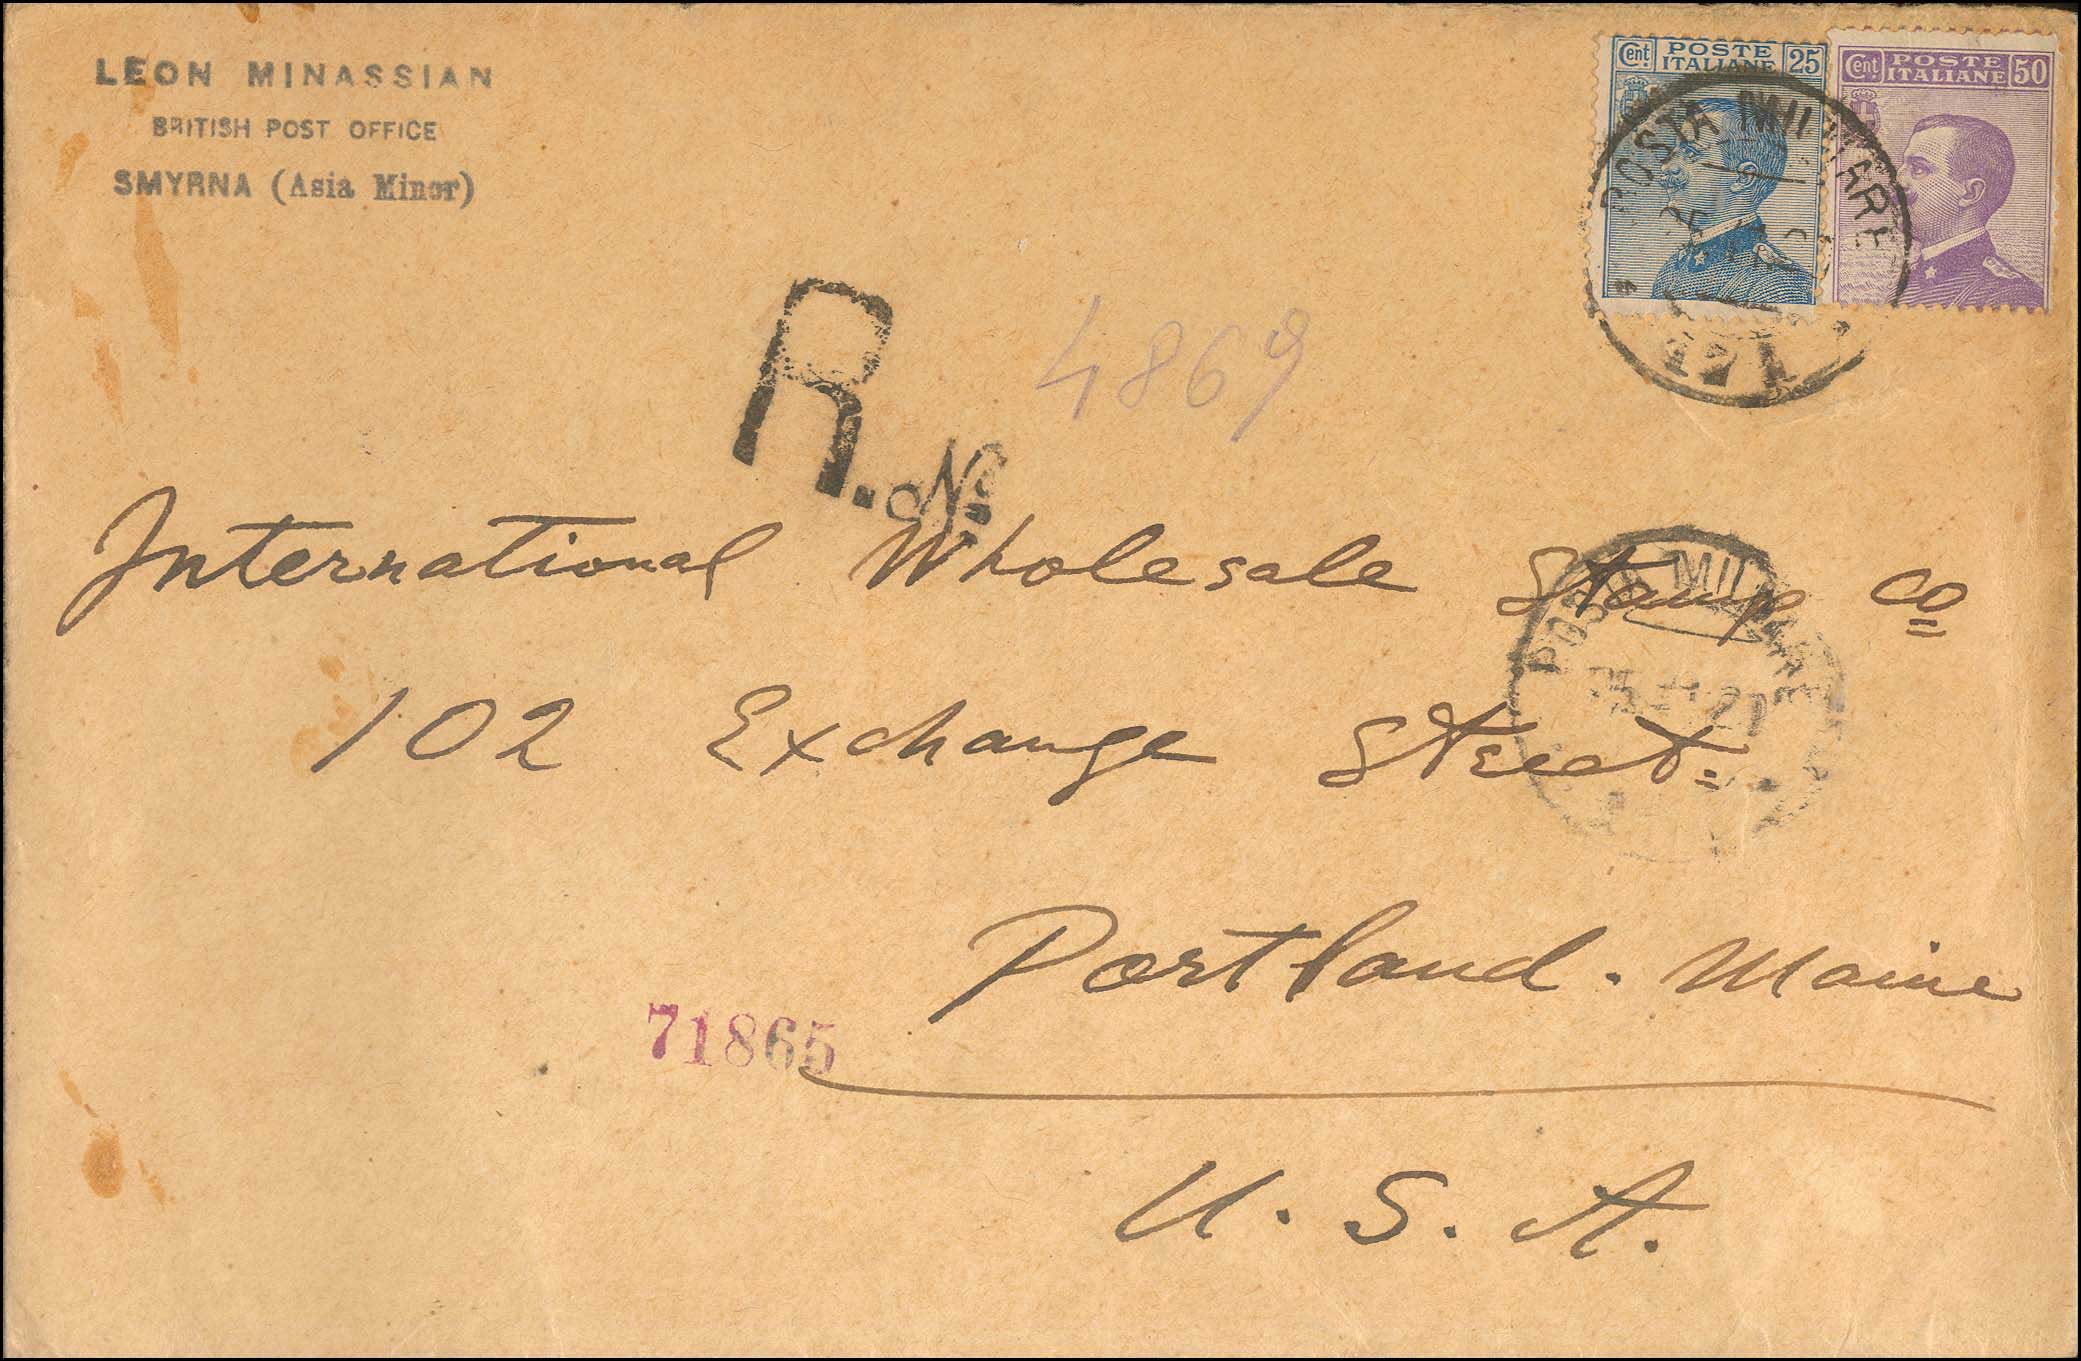 LEON MINASSIAN
BRITISH POST OFFICE
SMYRNA (Asia Minor)
Cent. POSTE ITALIANE 25
Cent. POSTE ITALIANE 50
POSTA MILITARE
171
R. No.
4869
International Wholesale Stamp Co
POSTA MILITARE
102 Exchange Street
Portland. Maine
71865
U. S. A.